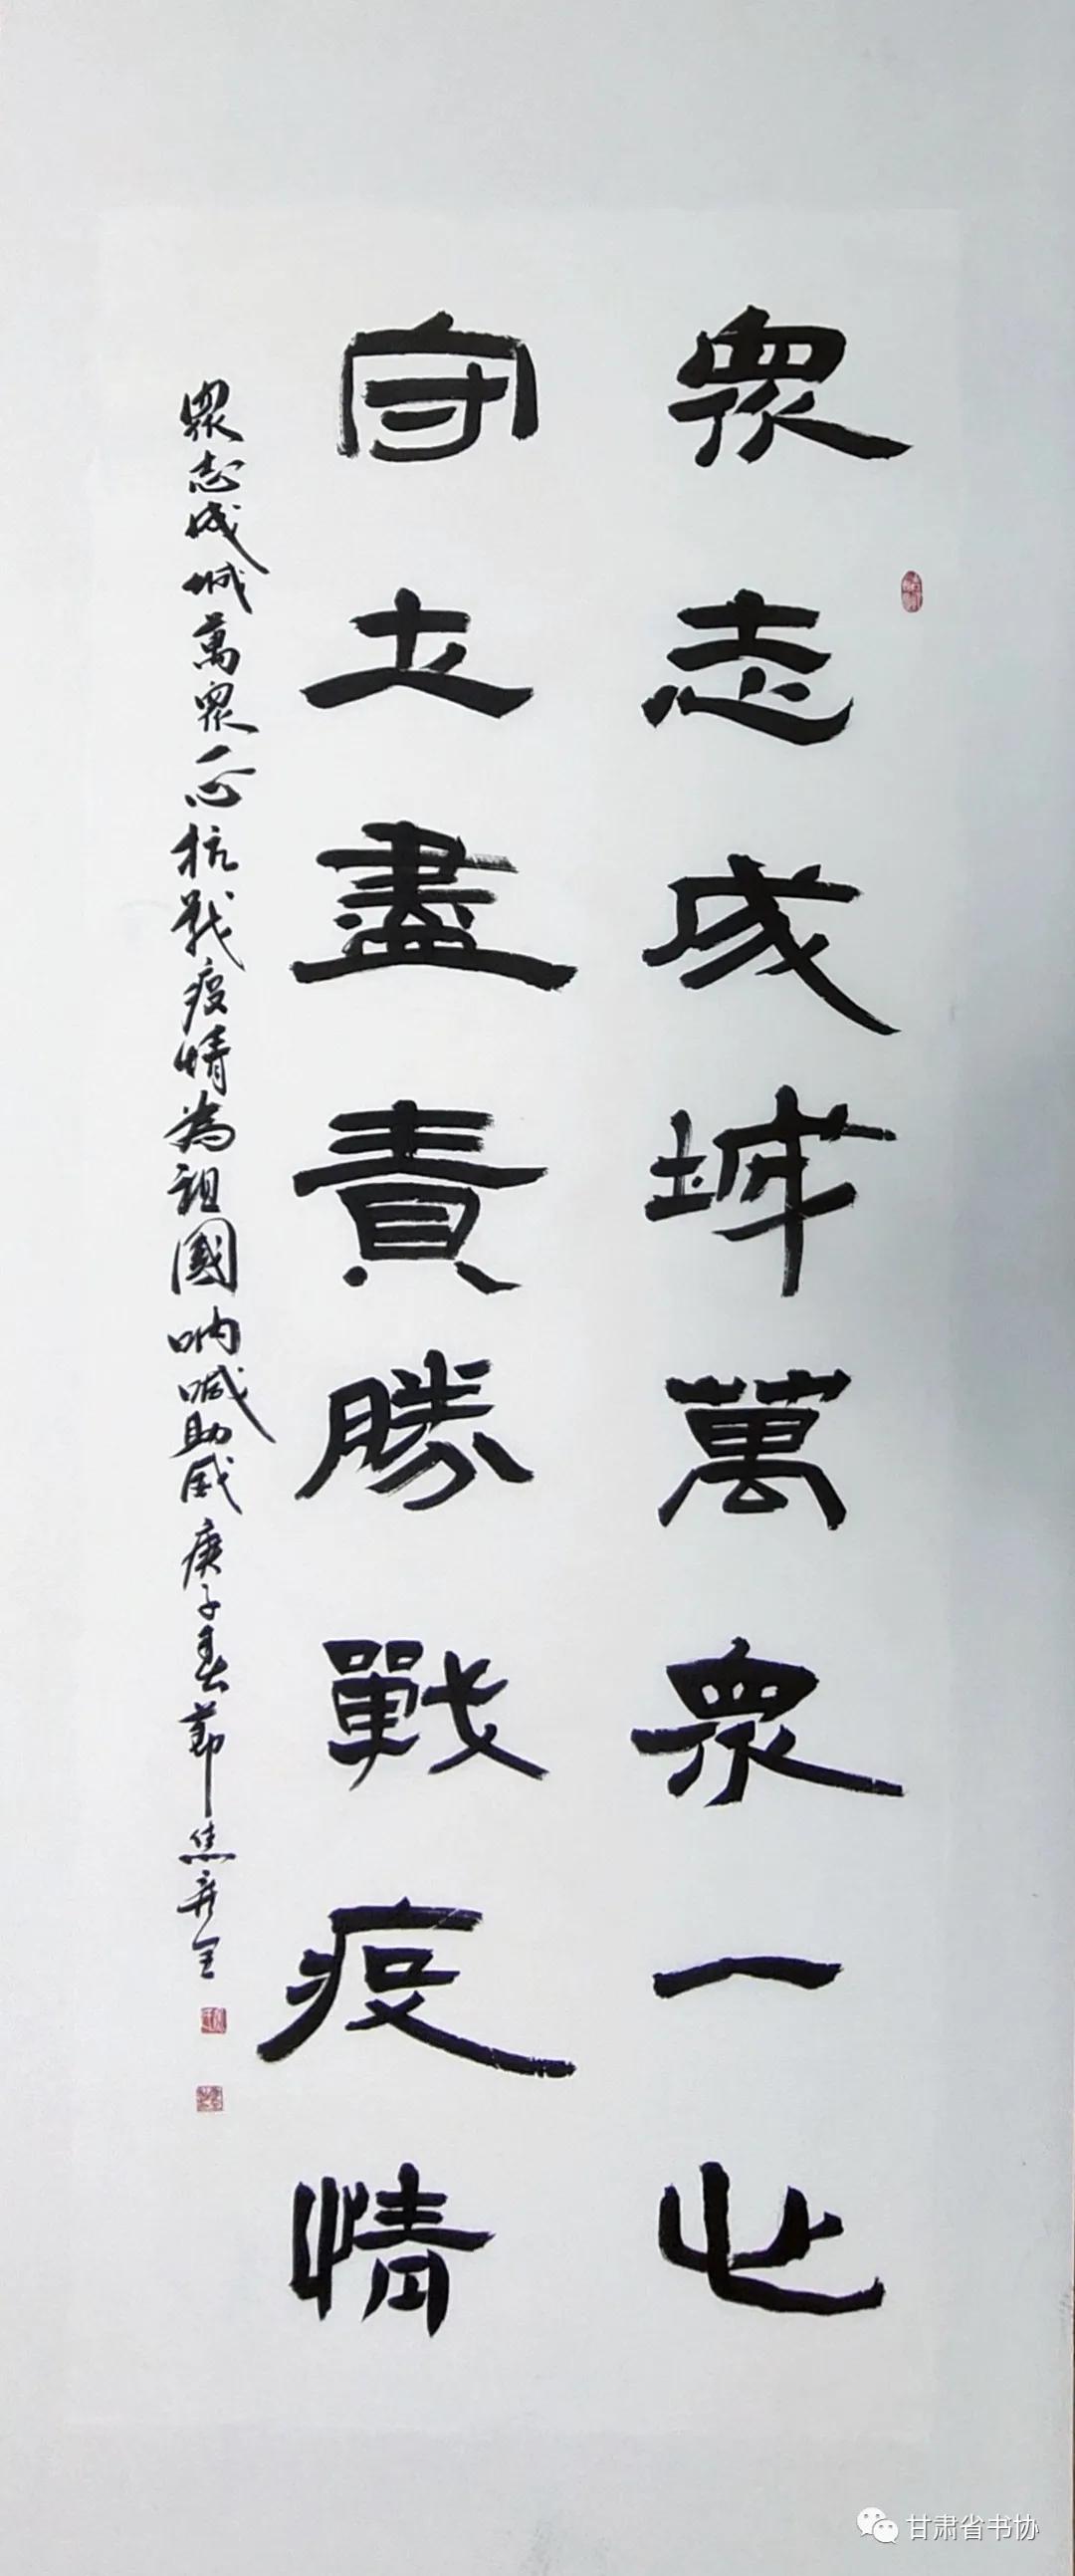 眾志成城萬眾一心
守土盡責勝戰疫情
眾志成城萬眾一心抗戰疫情為祖國吶喊助威庚子春節焦
甘肃省书协